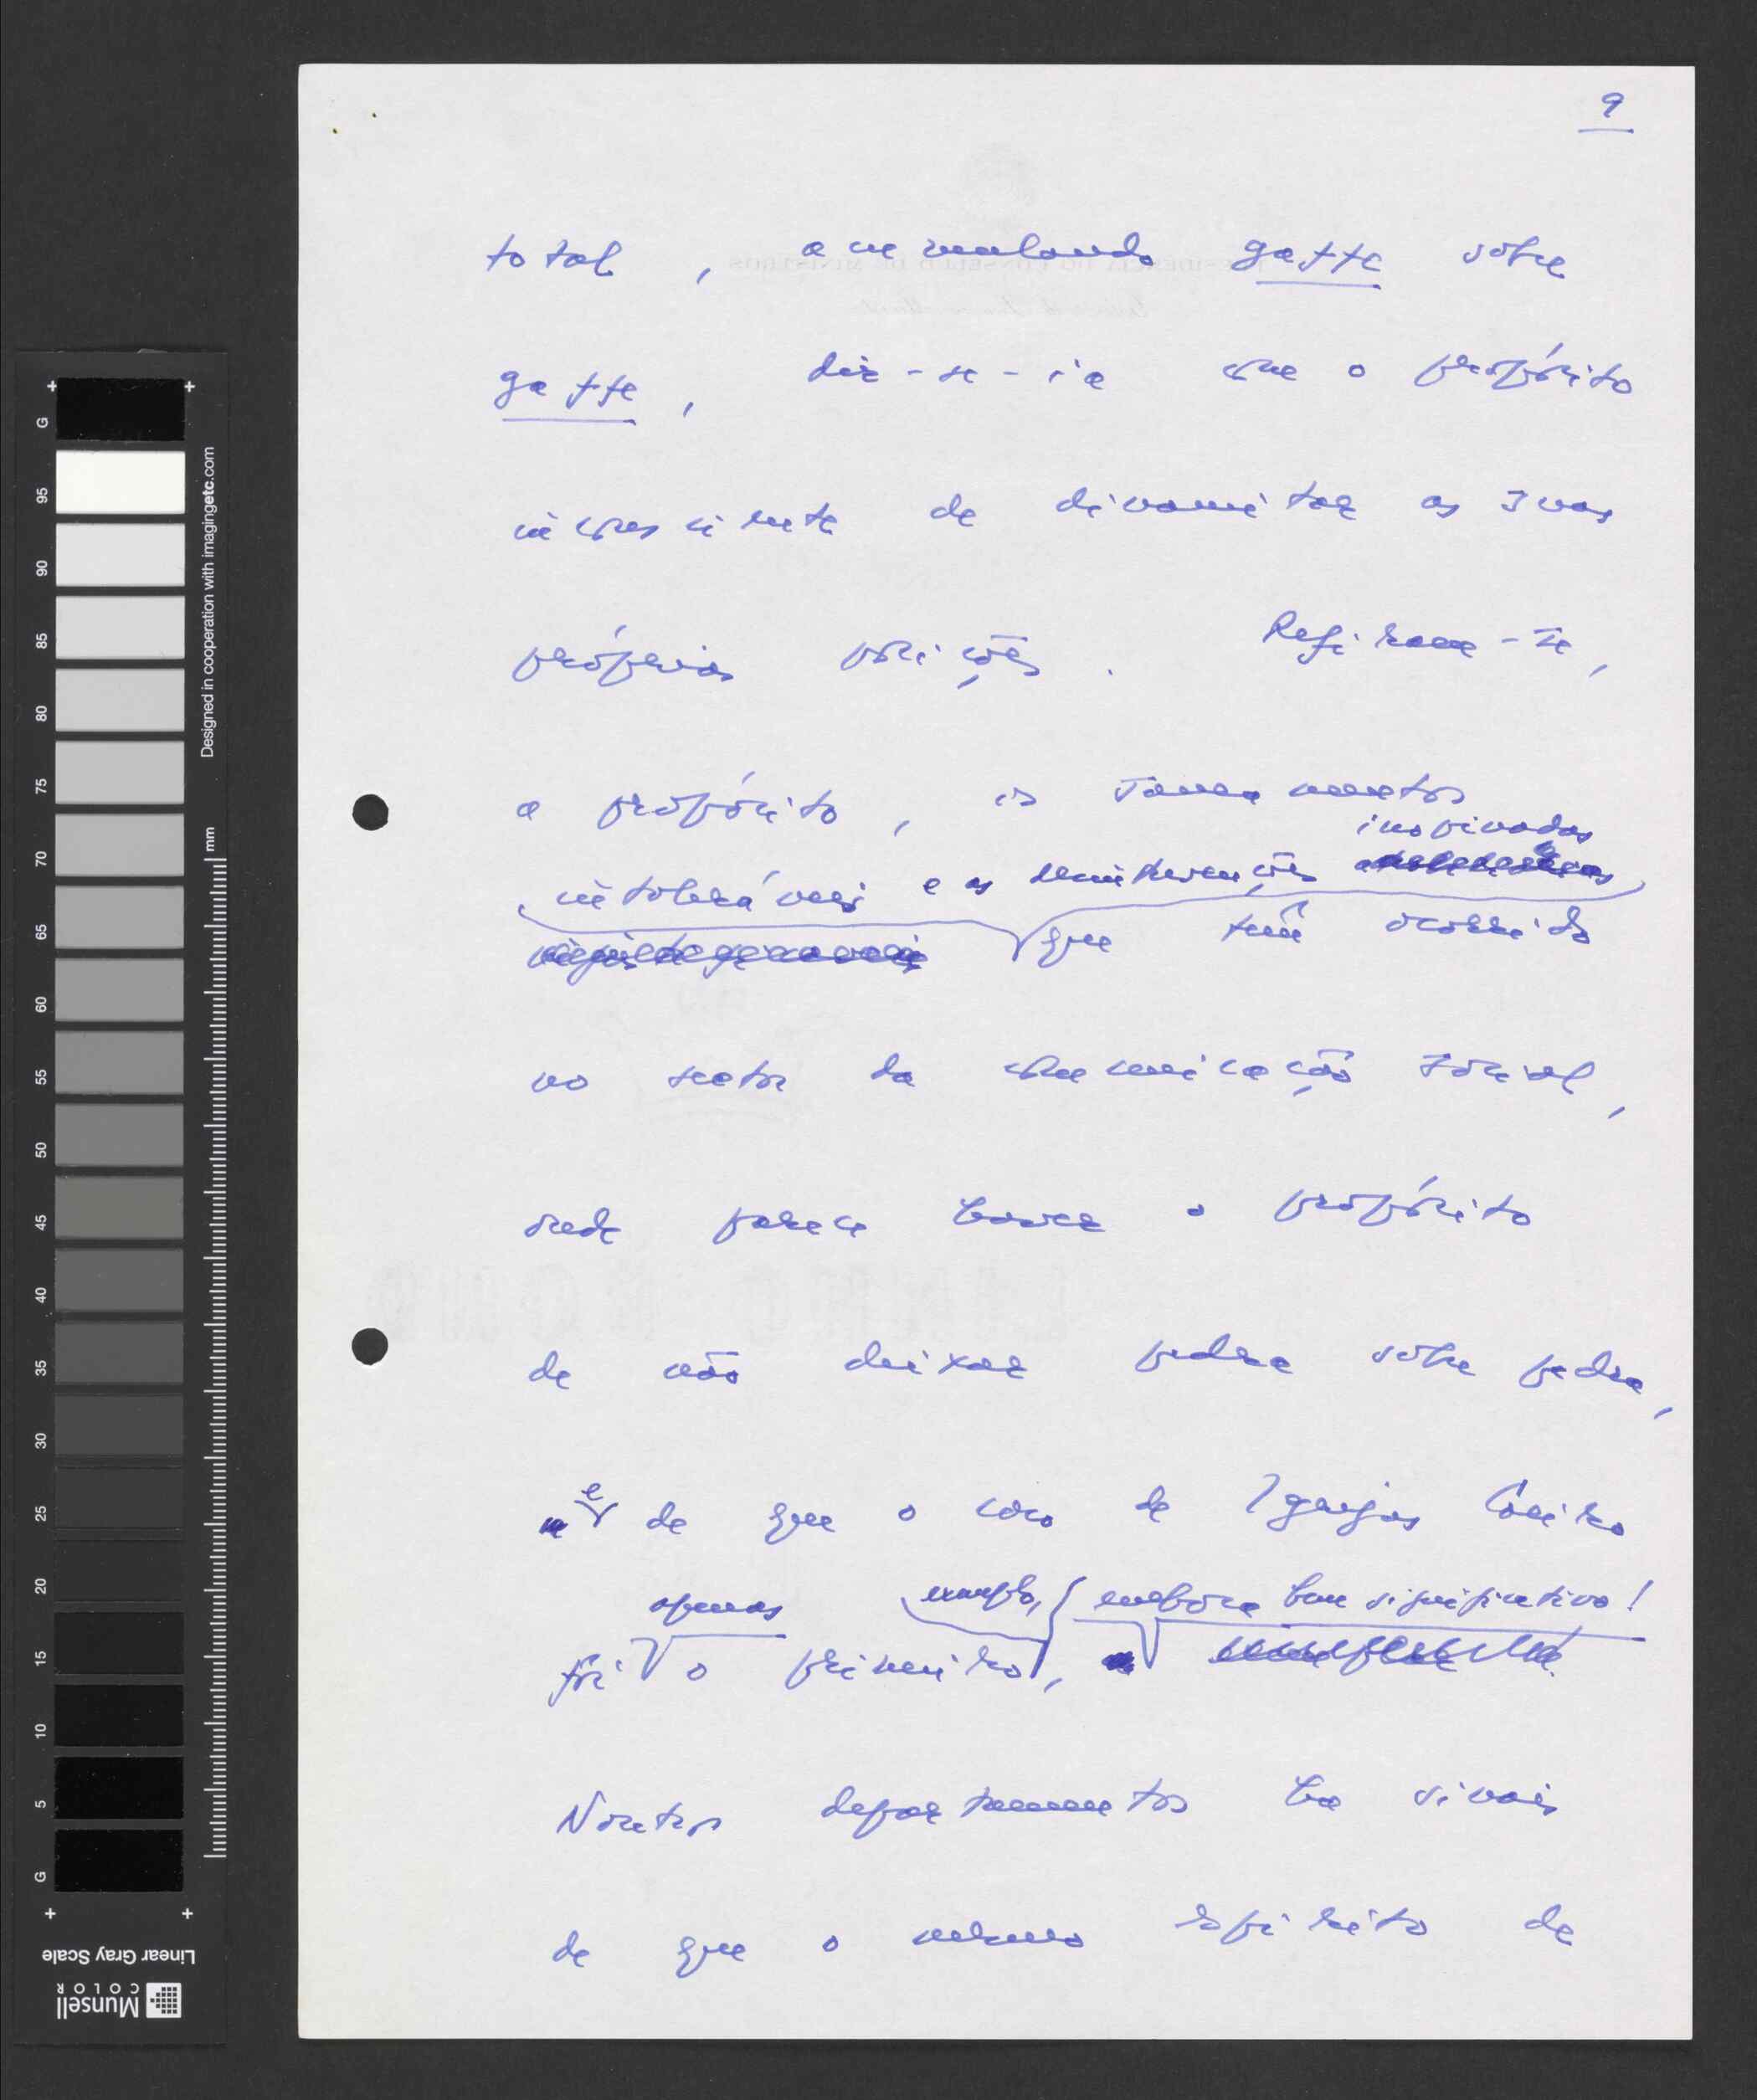 9
total, acumulando gaffe sobre
gaffe, dir-se-ia com o propósito
inconsciente de dinamitar as suas
próprias posições. Refiram-se,
a propósito, os saneamentos
inopinados
intoleráveis e as
que têm ocorrido
no sector da comunicação social,
onde parece haver o propósito
de não deixar pedra sobre pedra,
e de que o caso de Igrejas Caeiro
apenas exemplo, embora bem significativo!
foi o primeiro,
Noutros departamentos há sinais
de que o mesmo espírito de
G 95 90 85 80 75 70 65 60 55 50 45 40 35 30 25 20 15 10 5 G
Designed in cooperation with imagingetc.com
mm
Linear Gray Scale
Munsell
COLOR